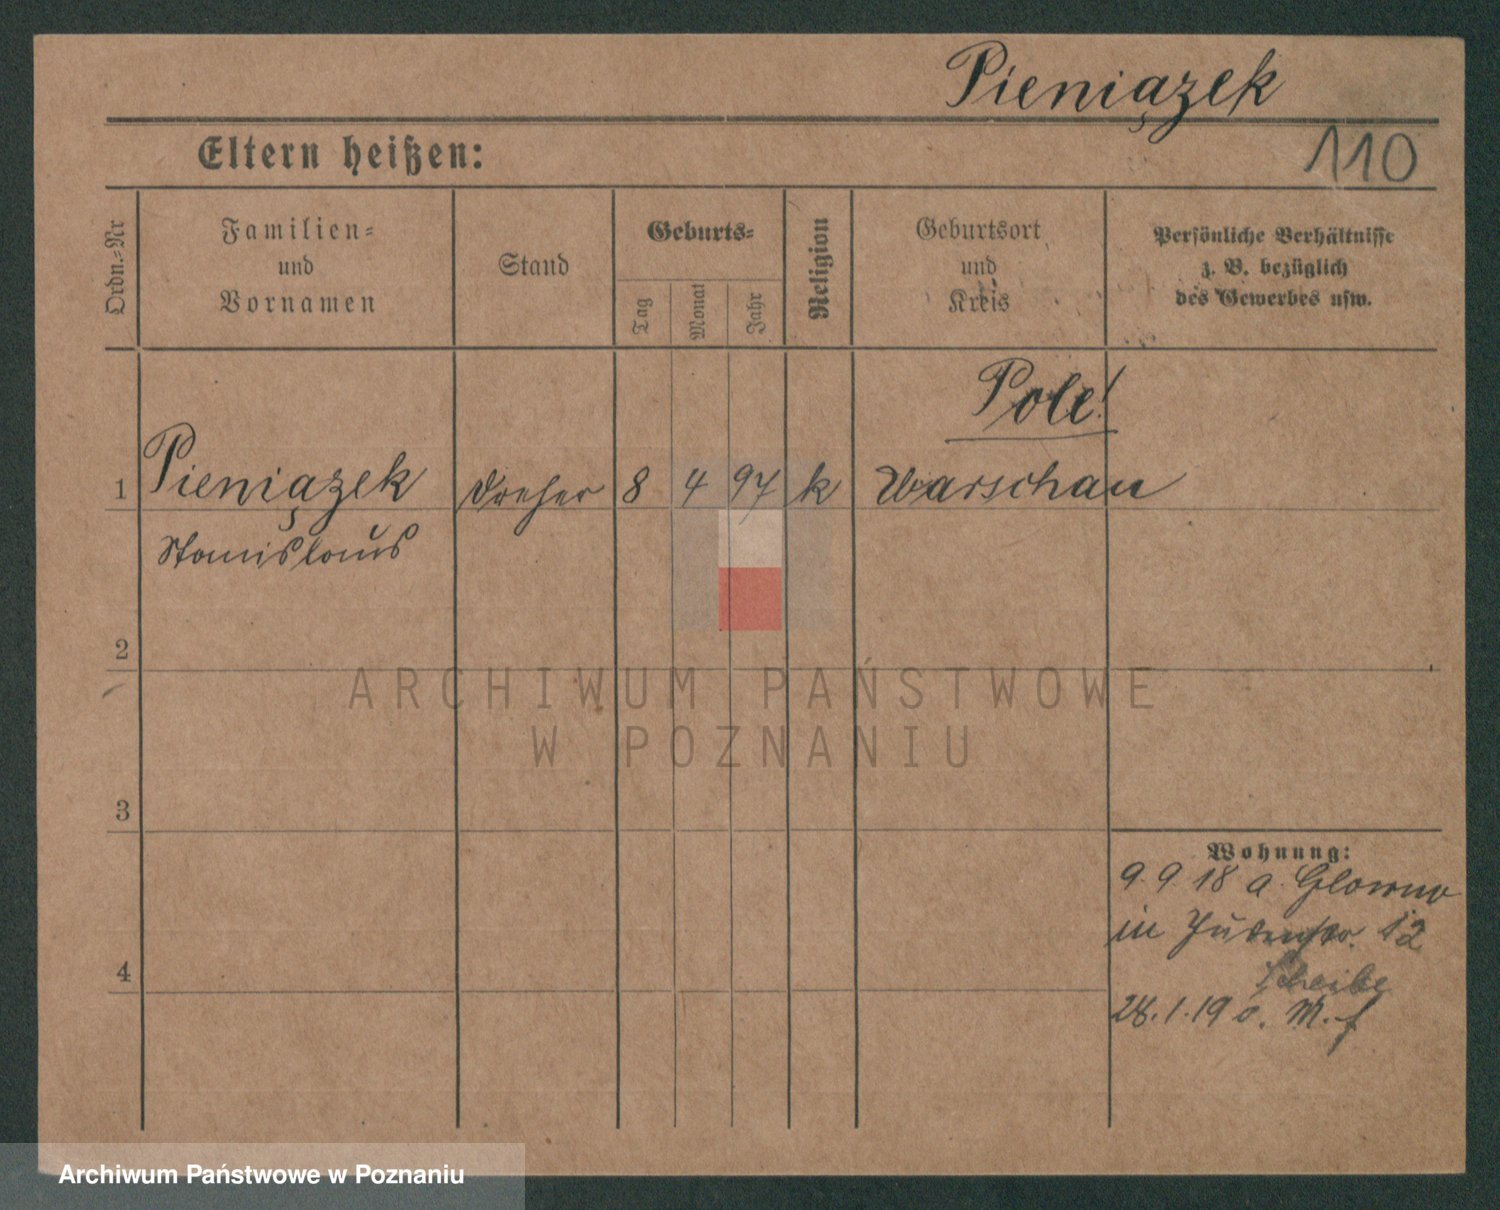 Pieniązek
110
Eltern heißen:
Ordn.-Nr
Familien-
und
Vornamen
Stand
Geburts-
Tag
Monat
Jahr
Religion
Geburtsort
und
Kreis
Persönliche Verhältnisse
z. B. bezüglich
des Gewerbes usw.
Pole!
1 Pieniązek Dreher 8 4 97 k Warschau
Stanislaus
2
ARCHIWUM PAŃSTWOWE
W POZNANIU
3
Wohnung:
9. 9 18 a. Glowno
in Judenstr. 12
Scheibe
4
28.1.19 o.
Archiwum Państwowe w Poznaniu